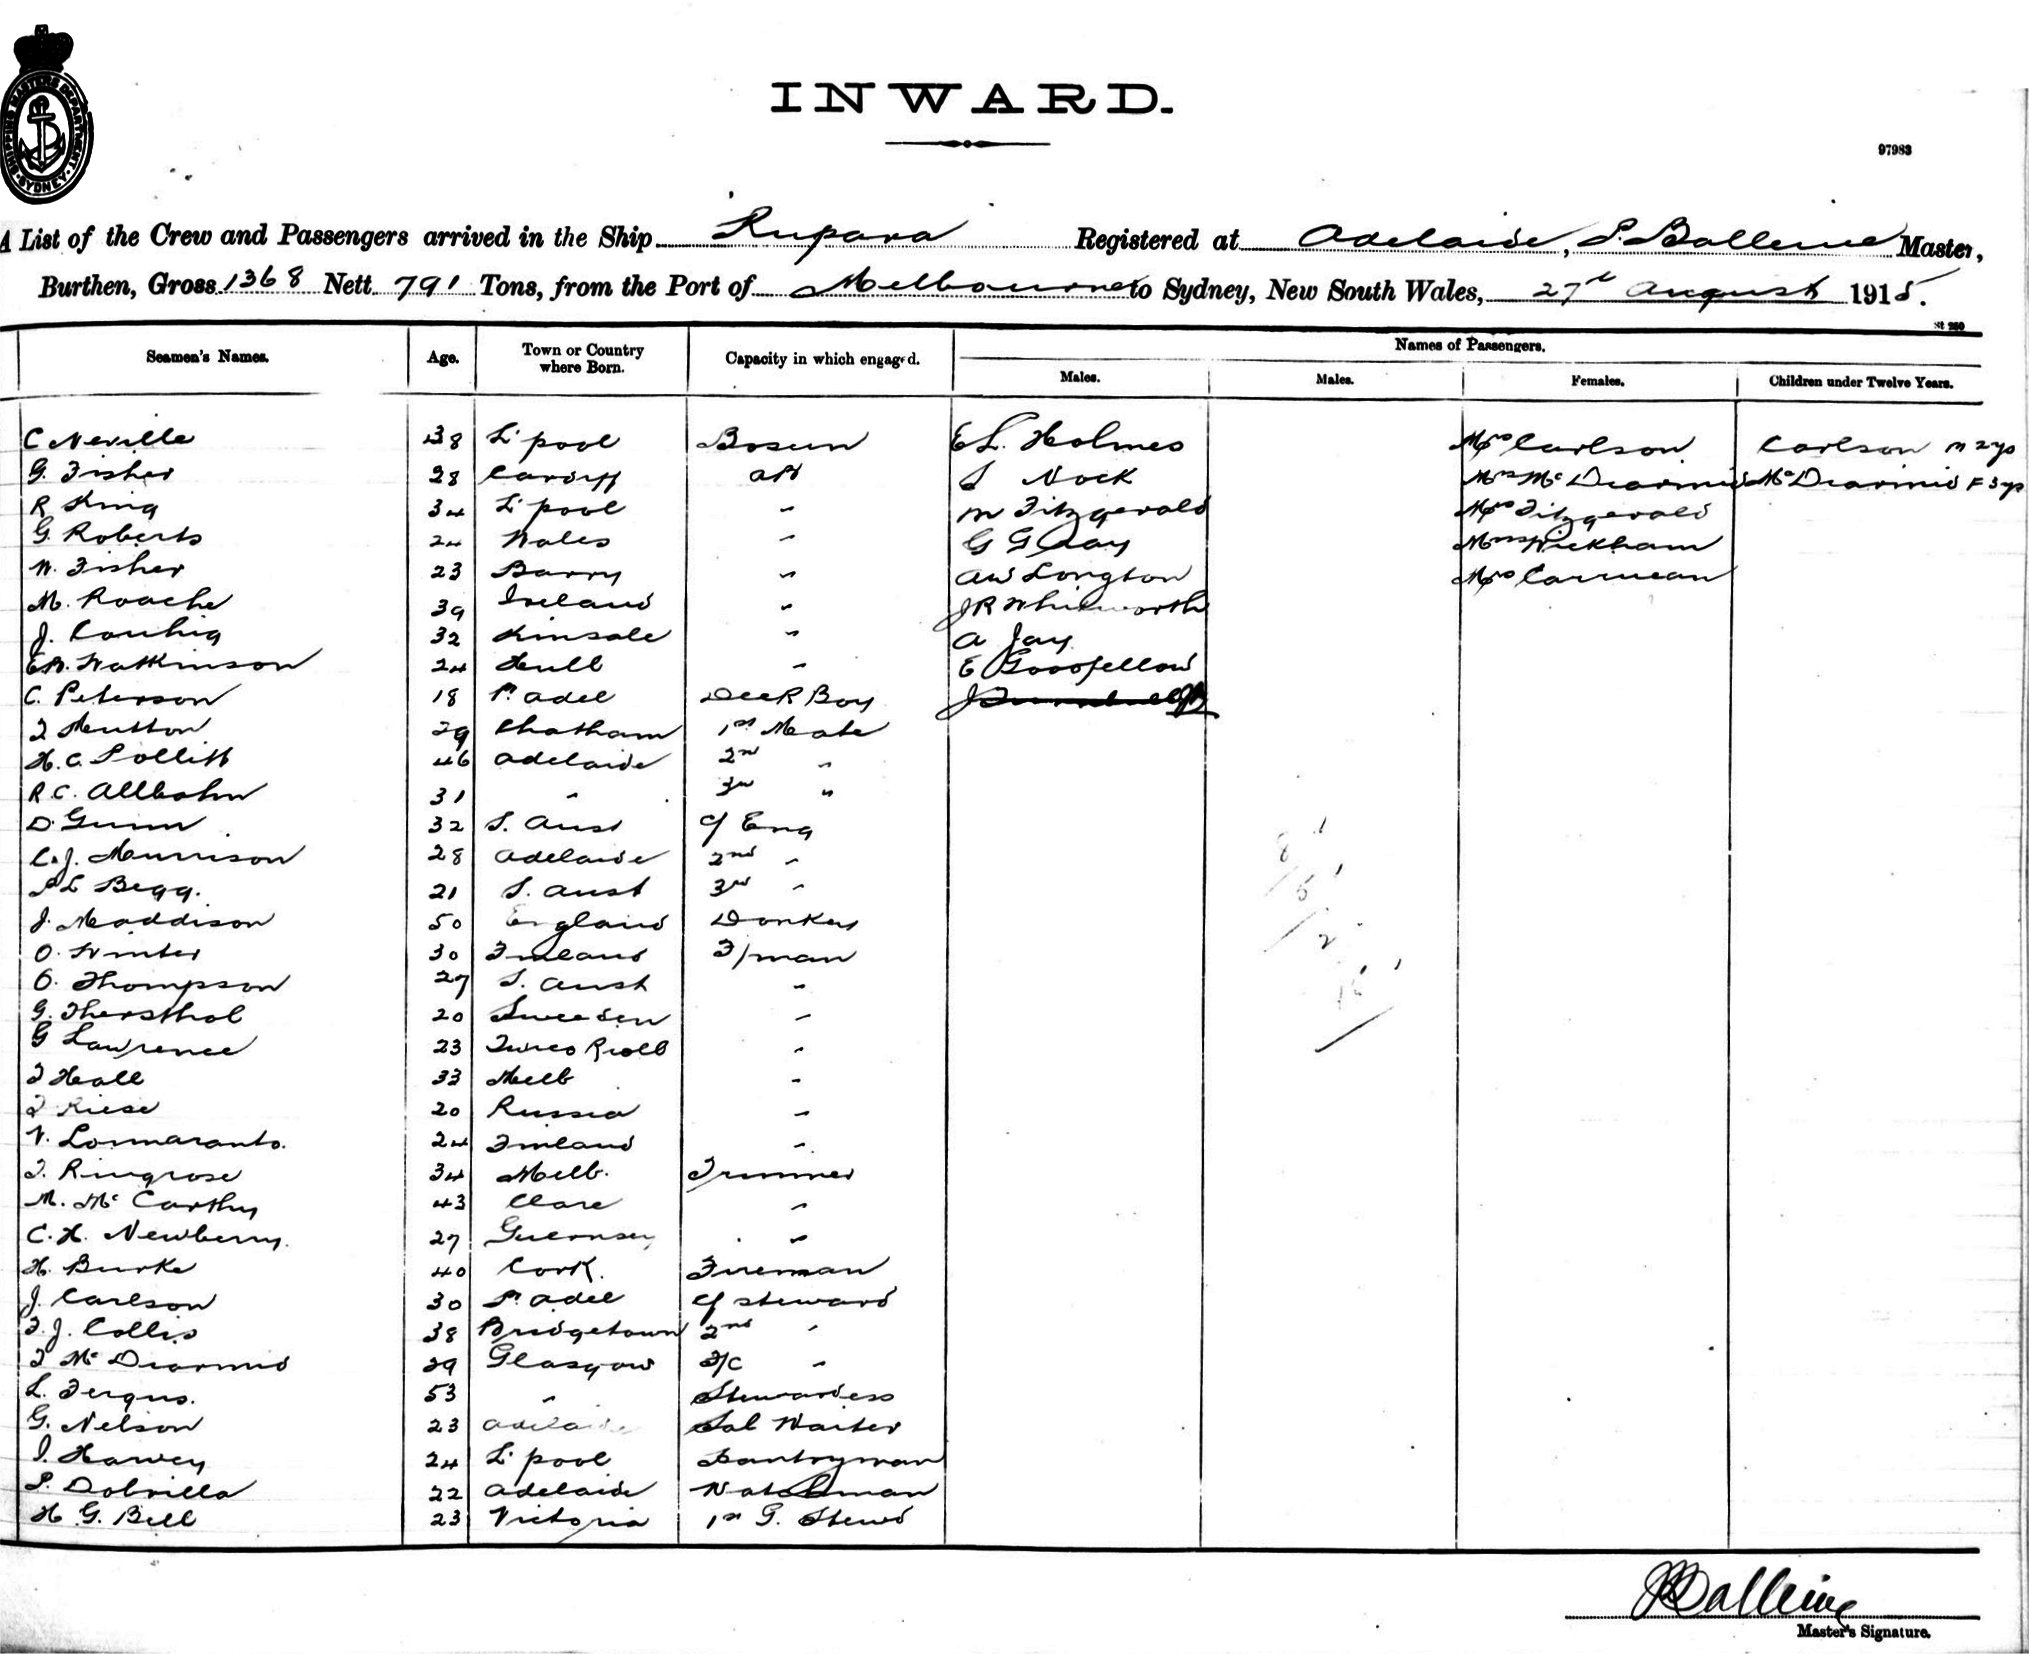 SHIPPING MASTERS DEPARTMENT
SYDNEY
INWARD.
97983
A List of the Crew and Passengers arrived in the Ship Rupara Registered at Adelaide, Balleine Master,
Burthen, Gross 1368 Nett 791 Tons, from the Port of Melbourne to Sydney, New South Wales, 27th August 1915.
St 250
Seamen's Names. Age. Town or Country where Born. Capacity in which engaged. Names of Passengers.
Males. Males. Females. Children under Twelve Years.
C Neville 38 L'pool Bosun E L. Holmes Mrs Carlson Carlson m 2 ys
G. Fisher 28 Cardiff AB S Nock Mrs McDiarmid McDiarmid F 3 ys
R King 34 L'pool " M Fitzgerald Mrs Fitzgerald
G. Roberts 24 Wales " G Gray Mrs Wickham
W. Fisher 23 Barry " AW Longton Mrs Carmean
M. Roache 39 Ireland " J R Whitworth
J. Couhig 32 Kinsale " A Jay
Watkinson 24 Hull " E Goodfellow
C. Peterson 18 Pt Adel Deck Boy
Mutton 29 Chatham 1st Mate
H. C. Pollitt 46 Adelaide 2nd "
R. C. Allbohn 31 " 3rd "
D. Gunn 32 S. Aust C/ Eng
C. J. Murrison 28 Adelaide 2nd "
Begg. 21 S. Aust 3rd "
J. Maddison 50 England Donkey
O. Winter 30 Finland F/man
O. Thompson 27 S. Aust "
G. Thersthol 20 Sweeden "
G Lawrence 23 "
Hall 33 Melb "
Riese 20 Russia "
V. Lonmaranto. 24 Finland "
Ringrose 34 Melb. Trimmer
M. McCarthy 43 Clare "
C. H. Newberry. 27 Guernsey "
H. Burke 40 Cork. Fireman
J. Carlson 30 Pt Adel C/ Steward
F. J. Collis 38 Bridgetown 2nd "
McDiarmid 29 Glasgow F/C "
L. Fergus. 53 " Stewardess
G. Nelson 23 Adelaide Sal Waiter
Harvey 24 L'pool Pantryman
Dobrilla 22 Adelaide Watchman
H G. Bell 23 Victoria 1st G. Stewd
8
5
2
15
Balleine
Master's Signature.